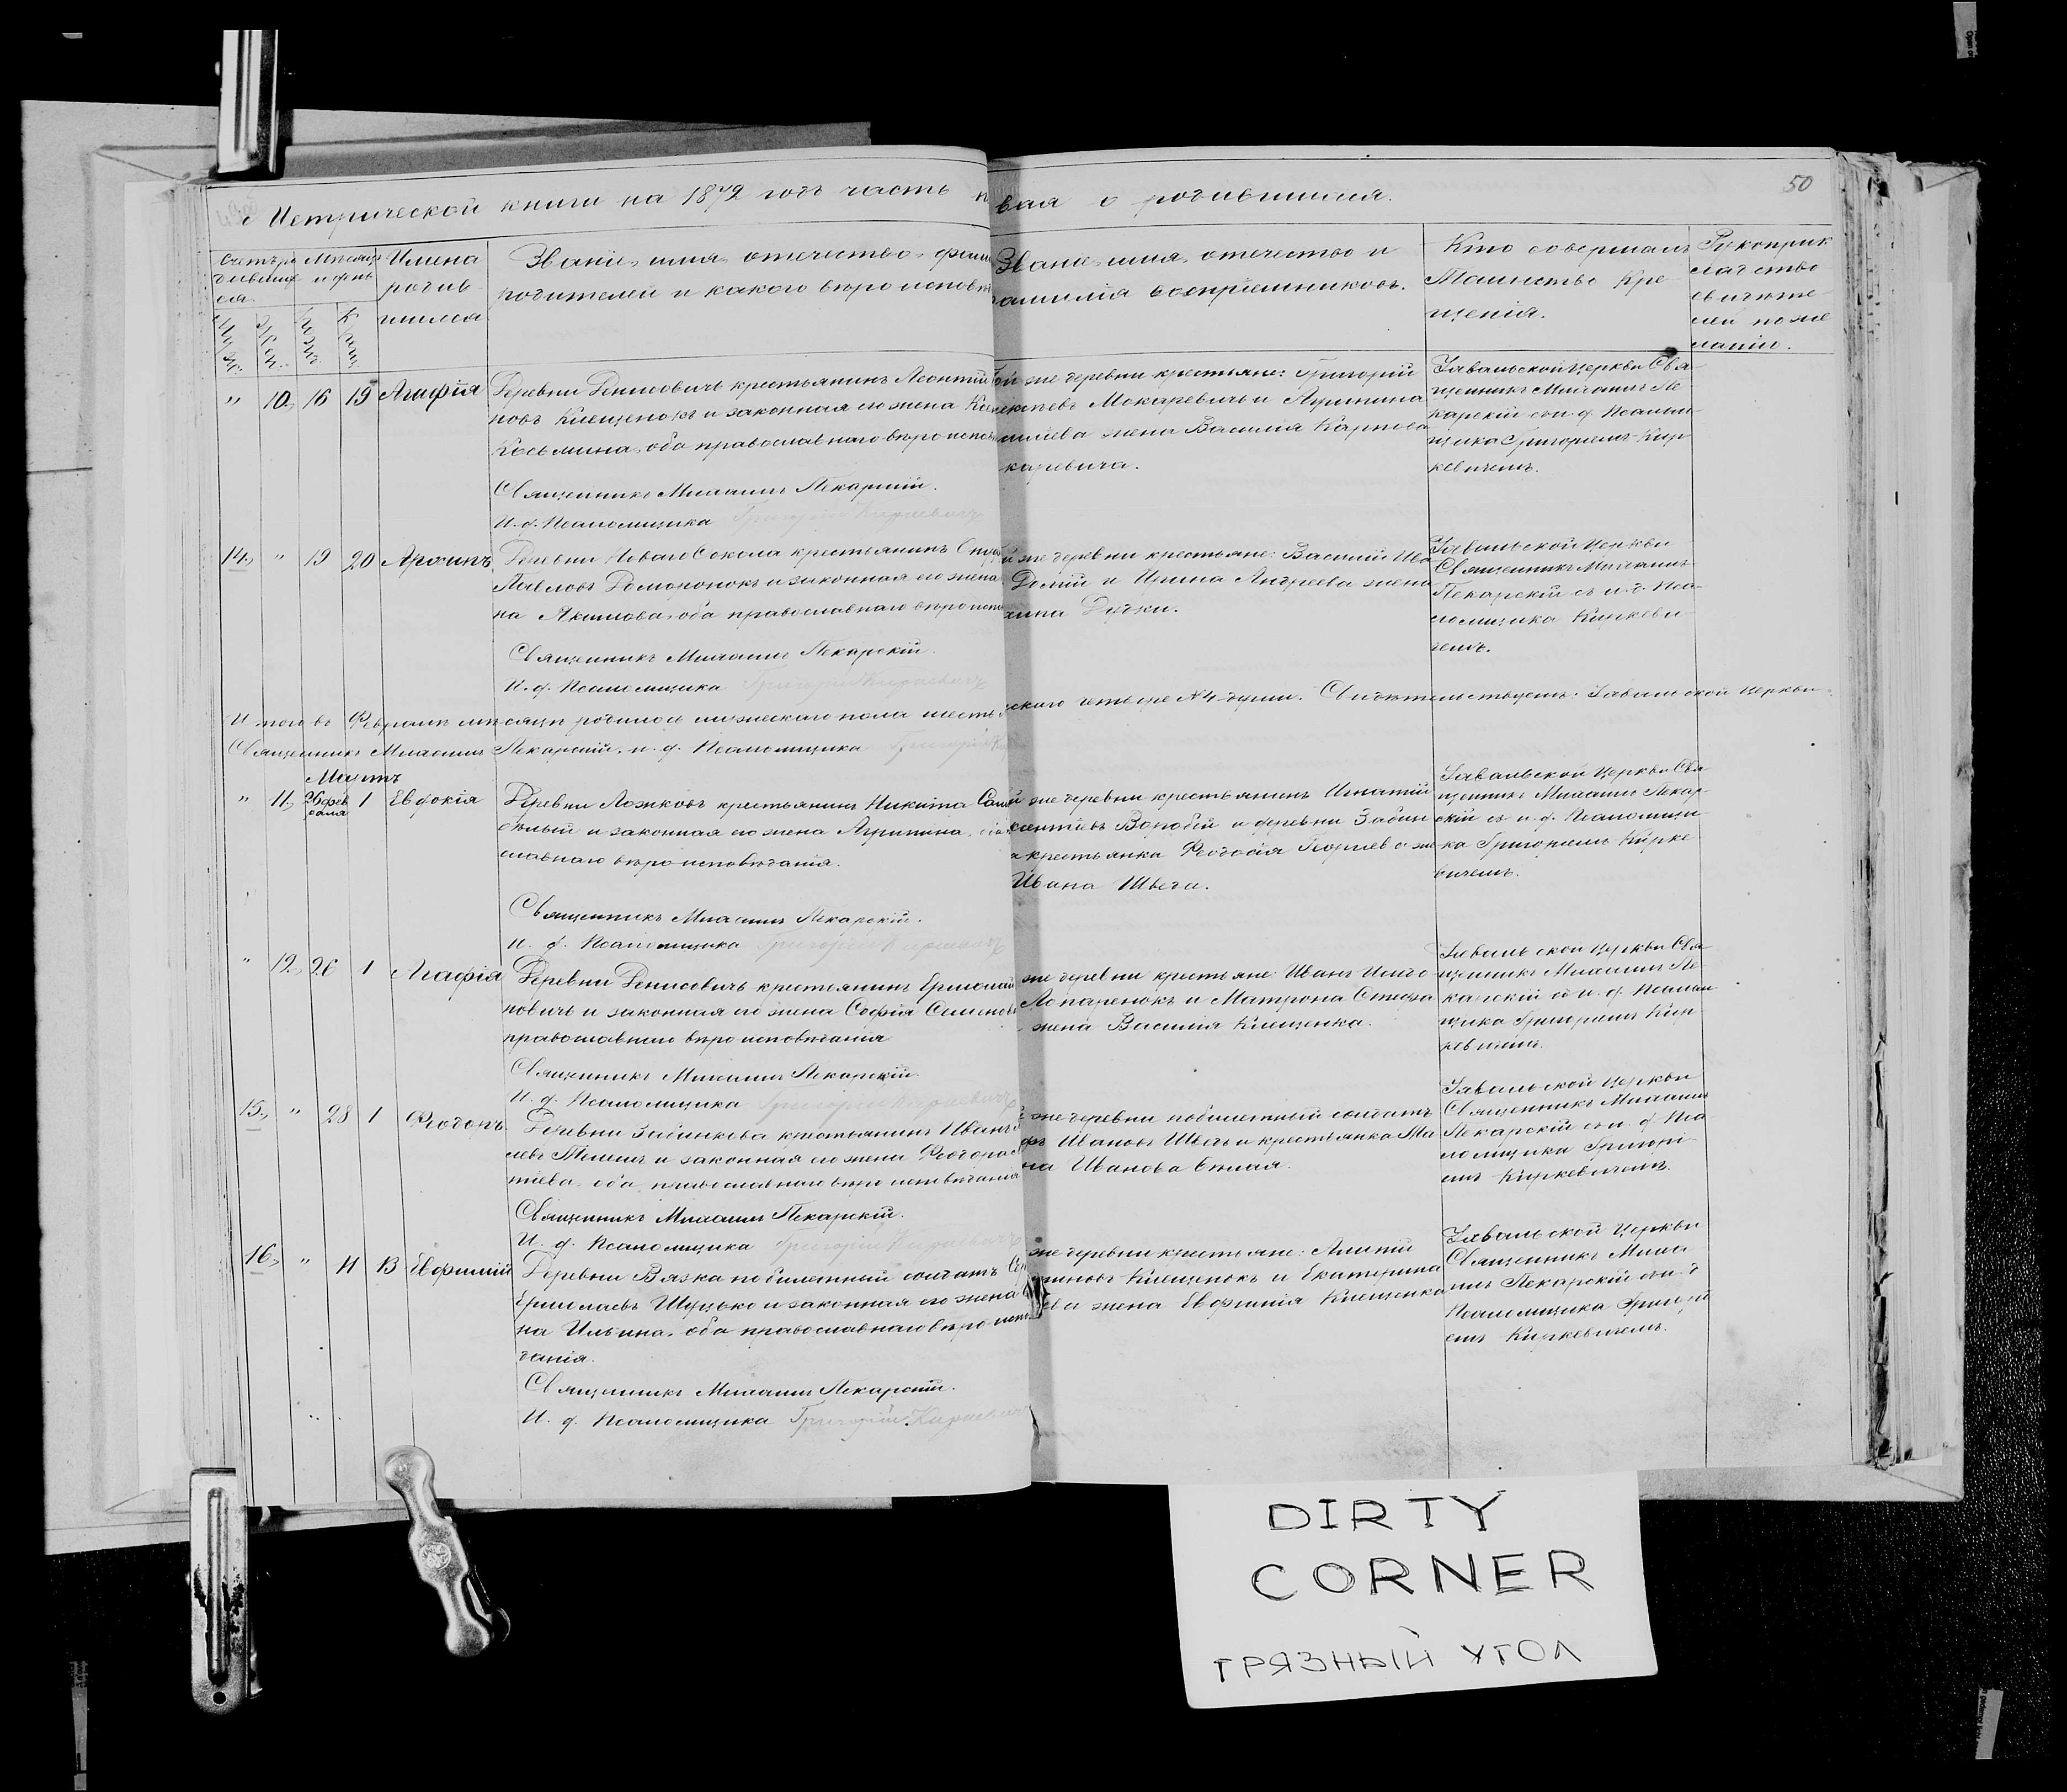 50
Метрической книги на 1872 годъ часть п
вая о родившихся.
Счетъ ро
дивших
ся.
Мѣсяцъ
и день
Имена
родив
шихся
Званіе, имя, отечество, фами
родителей и какого вѣроисповѣ
Званіе, имя, отечество и
фамилія воспріемниковъ.
Кто совершалъ
Таинство Кре
щенія.
Рукоприк
ладство
свидѣте
лей по же
ланію.
" 10, 16 19 Агафія
Деревни Денисовичъ крестьянинъ Леонтій
новъ Клещенокъ и законная его жена
Косьмина, оба православнаго вѣроиспов
Священникъ Михаилъ Пекарскій.
И. д. Псаломщика Григорій Киркевичъ
ой же деревни крестьяне: Григорій
Макаревичъ и Агрипина
жена Василія Карпова
каревича.
Завальской Церкви Свя-
щенникъ Михаилъ Пе
карскій съ и. д. Псалом-
щика Григоріемъ Кир
кевичемъ.
14, " 19 20 Архипъ
Деревни Новаго Сокола крестьянинъ
Павловъ Доморонокъ и законная его жена
на Акимова, оба православнаго вѣроиспо
Священникъ Михаилъ Пекарскій.
И. д. Псаломщика Григорій Киркевичъ
й же деревни крестьяне: Василій Ива
и Ирина Андреева жена
Дудки.
Завальской Церкви
Священникъ Михаилъ
Пекарскій съ и. д. Пса-
ломщика Киркеви
чемъ.
Итого въ Февралѣ мѣсяцѣ родилось мужескаго пола шесть
скаго четыре №4 души. Свидѣтельствуемъ: Завальской Церкви
Священникъ Михаилъ Пекарскій, и. д. Псаломщика Григорій
Мартъ
" 11, 26 фев
раля 1 Евдокія
Деревни Ложковъ крестьянинъ Никита
бѣлый и законная его жена Агрипина
славнаго вѣроисповѣданія.
Священникъ Михаилъ Пекарскій.
И. д. Псаломщика Григорій Киркевичъ
й же деревни крестьянинъ Игнатій
Воробей и деревни Забин
крестьянка Ѳеодосія
Ивана Шведа.
Завальской Церкви Свя-
щенникъ Михаилъ Пекар-
скій съ и. д. Псаломщи-
ка Григоріемъ Кирке
вичемъ.
" 12, 26 1 Агафія
Деревни Денисовичъ крестьянинъ Ермолай
новичъ и законная его жена Софія Семенова
православнаго вѣроисповѣданія
Священникъ Михаилъ Пекарскій.
И. д. Псаломщика Григорій Киркевичъ
же деревни крестьяне Иванъ Исидо
Лопаренокъ и Матрона Стефа
жена Василія Клещенка.
Завальской Церкви Свя-
щенникъ Михаилъ Пе
карскій съ и. д. Псалом
щика Григоріемъ Кир
кевичемъ.
15, " 28 1 Ѳеодоръ
Деревни Забинкова крестьянинъ Иванъ
и законная его жена Ѳеодора
тіева, оба православнаго вѣроисповѣданія
Священникъ Михаилъ Пекарскій.
И. д. Псаломщика Григорій Киркевичъ
же деревни побилетный солдатъ
Ивановъ Шведъ и крестьянка Ма
на Иванова Бѣлая.
Завальской Церкви
Священникъ Михаилъ
Пекарскій съ и. д. Пса
ломщика Григорі-
емъ Киркевичемъ.
16, " 11 13 Евфимій
Деревни Вязка побилетный солдатъ
Ермолаевъ Шуцько и законная его жена
на Ильина, оба православнаго вѣроиспо
данія.
Священникъ Михаилъ Пекарскій.
И. д. Псаломщика Григорій Киркевичъ
же деревни крестьяне:
Клещенокъ и Екатерина
ева жена Евфимія Клещенка
Завальской Церкви
Священникъ Миха
илъ Пекарскій съ и. д
Псаломщика Григорі
емъ Киркевичемъ.
DIRTY
CORNER
ГРЯЗНЫЙ УГОЛ